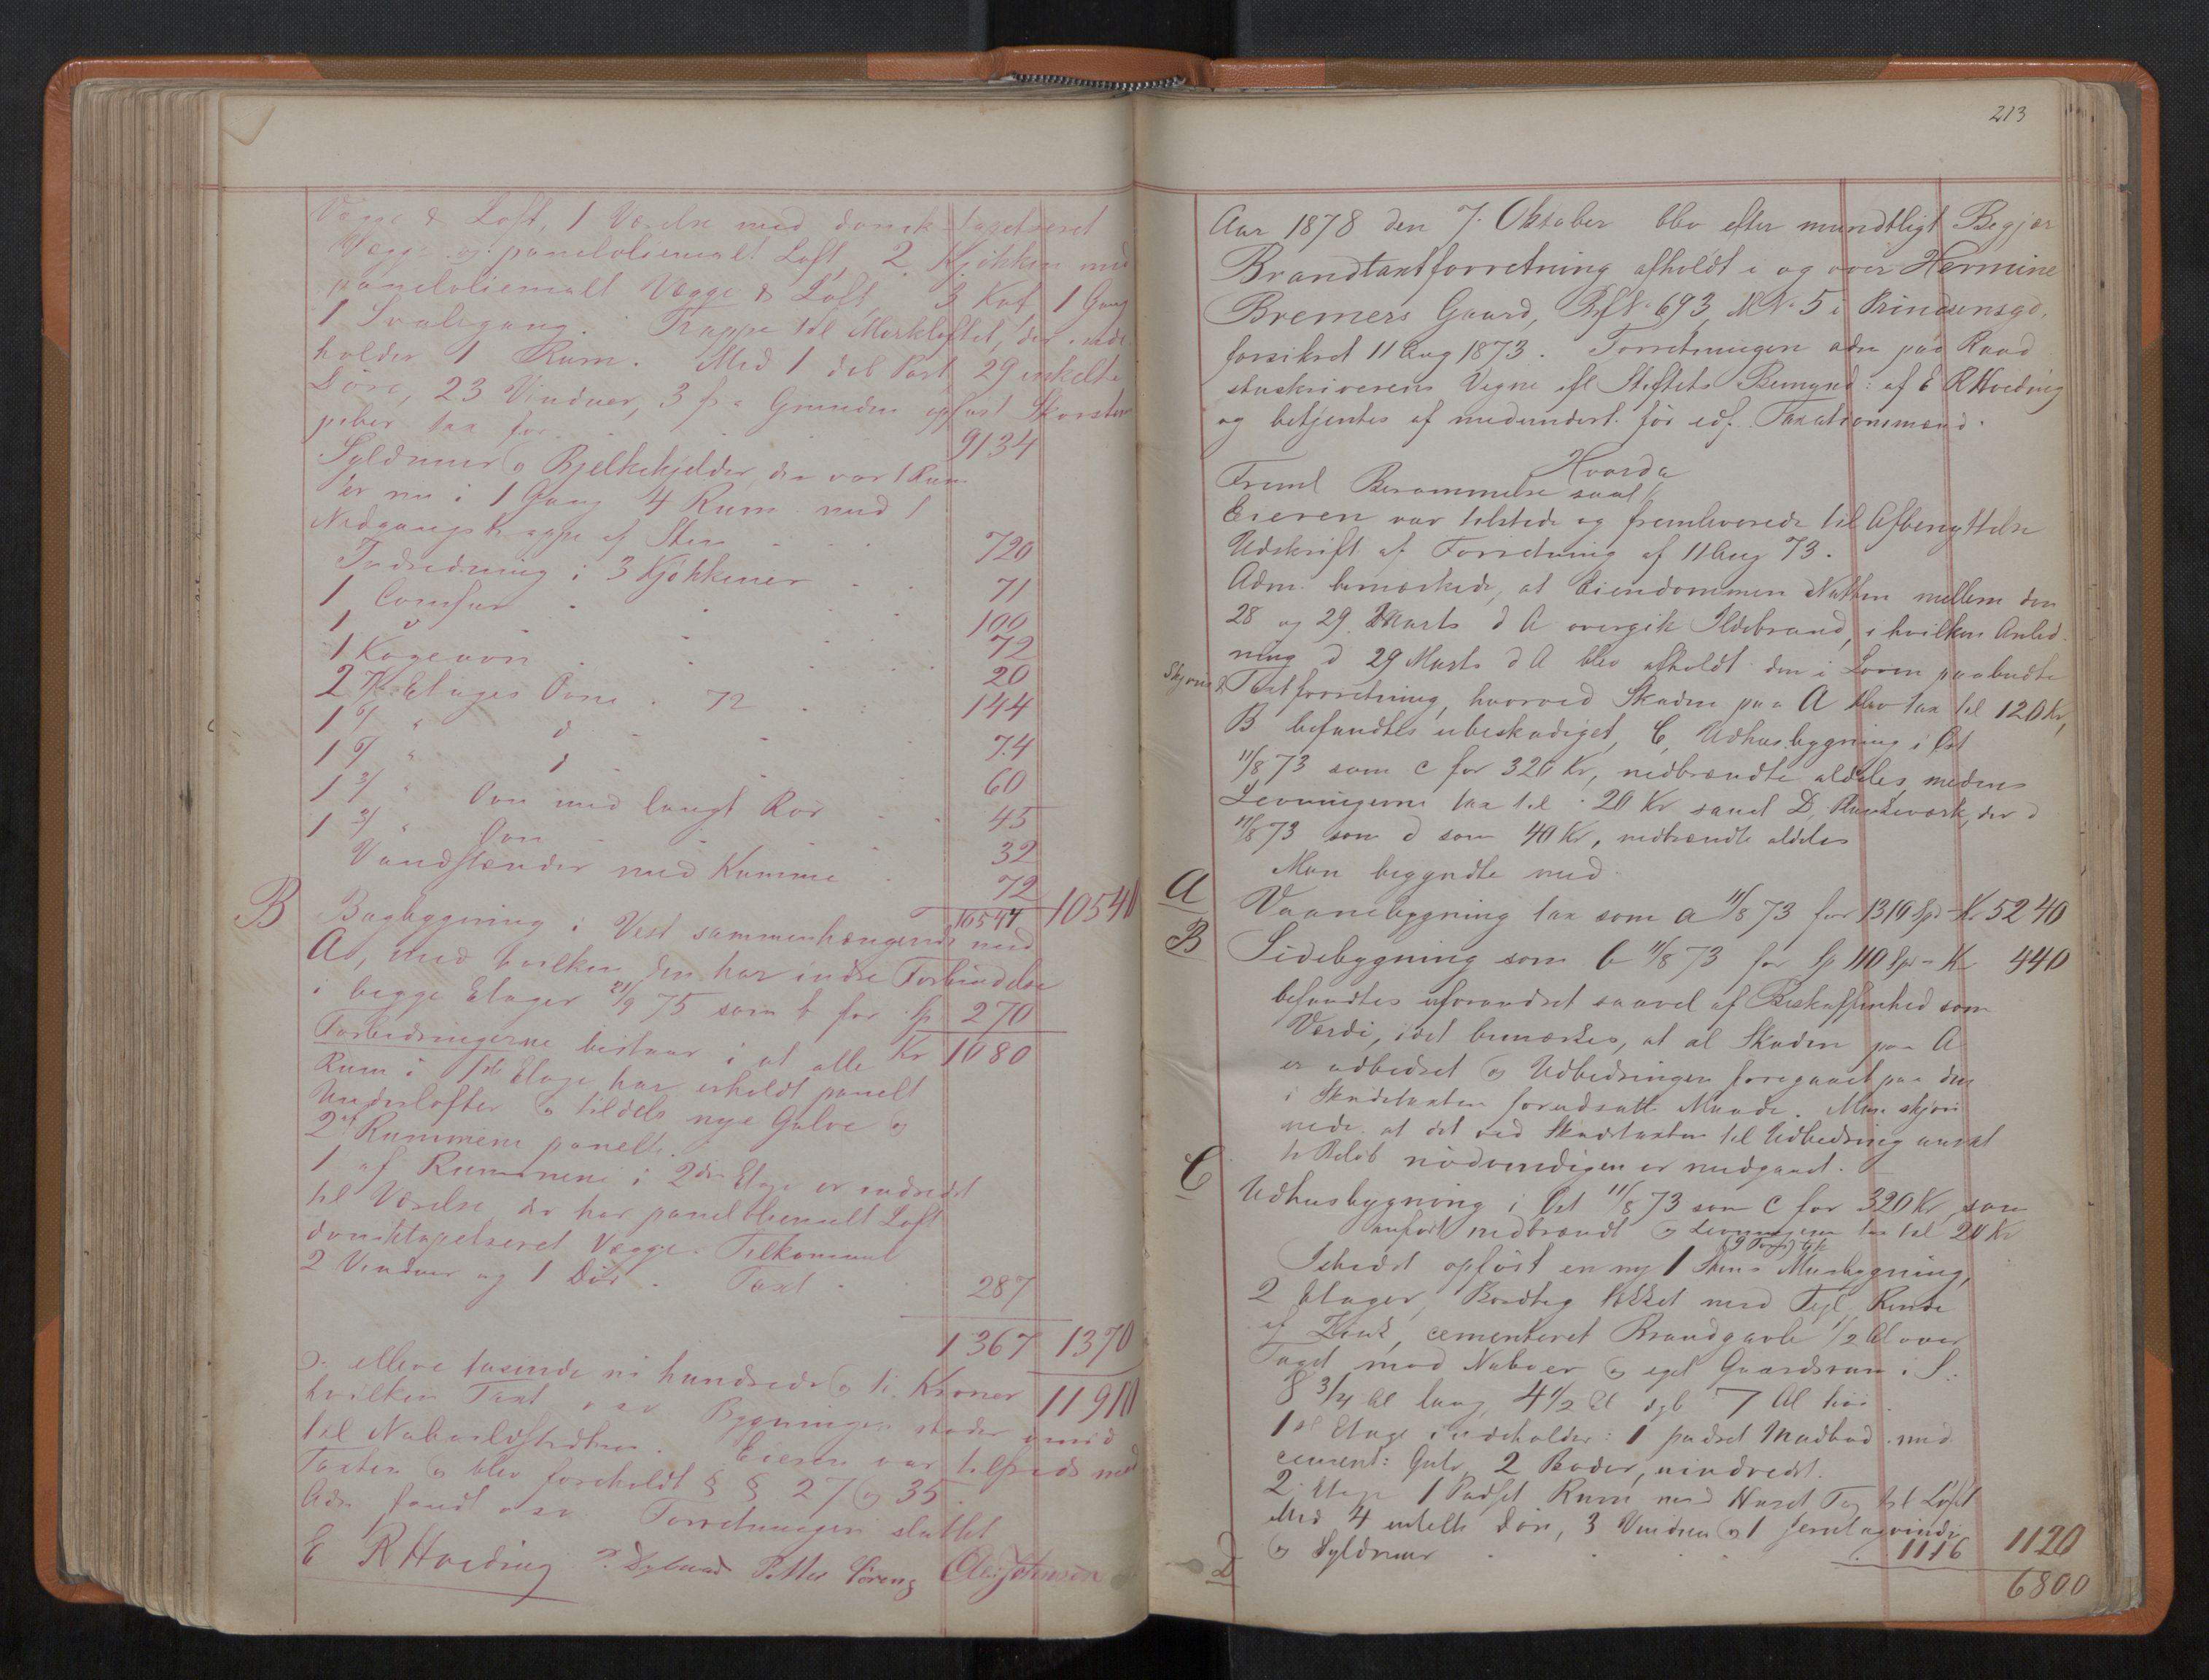 Vægge & Loft, 1 Værelse med dansk tapetseret
Vægge og paneloliemalt Loft, 2 Kjøkken med
paneloliemalt Vægge & Loft, 3 Kof 1 Gang
1 Svalegang. Trappe til Mørkloftet, der inde
holder 1 Rum. Med 1 dob Port 29 enkelte
Døre, 23 Vinduer, 3 fra Grunden opført Skorsten
piber tax for 9134
Syldmur & Bjelkekjelder, der var 1 Rum
er nu i 1 Gang 4 Rum med 1
Nedgangstrappe af Sten 720
Indredning i 3 Kjøkkener 71
1 Comfur 100
1 d 72
1 Kageovn 20
2 Etages Ovne . 72 144
1 6/ " d 74
1 6/ " d 60
1 3/ " Ovn med langt Rør 45
1 3/ " Ovn 32
Vandstænder med Kumme 72
10544 10540
B Bagbygning i Vest sammenhængende med
A, med hvilken den har indre Forbindelse
i begge Etager 21/9 75 som b for Sp 270
Forbedringerne bestaar i at alle Kr 1080
Rum i 1ste Etage har erholdt panelt
Underlofter & tildels nye Gulve &
2 af Rummene panelt.
1 af Rummene i 2den Etage er indredet
til Værelse, der har paneloliemalt Loft
dansktapetseret Vægge. Tilkommet
2 Vinduer og 1 Dør. Taxt 287
1367 1370
elleve tusinde ni hundrede & ti Kroner 11910
hvilken Taxt Bygningen
til Naboildsteder. Eieren var tilfreds med
Taxten & blev foreholdt § § 27 & 35.
Adm fandt Forretningen sluttet
E R Hoeding Petter Søreng Ole Johnsen
213
Aar 1878 den 7. Oktober blev efter mundtligt Begjær
Brandtaxtforretning afholdt i og over Hermine
Bremers Gaard, BrfN. 693, MN. 5 i Prindsensgd.
forsikret 11 Aug 1873. Forretningen adm paa Raad
stuskriverens Vegne efl Stiftets Bemynd: af E R Hoeding
og betjentes af medundert. før edf. Taxationsmænd.
Hvorda
Freml Berammelse saal.
Eieren var tilstede og fremleverede til Afbenyttelse
Udskrift af Forretning af 11 Aug 73.
Adm. bemærkede, at Eiendommen Natten mellem den
28 og 29 Marts d A overgik Ildebrand, i hvilken Anled
ning d 29 Marts d A blev afholdt den i Loven paabudte
Skjøns & Taxtforretning, hvorved Skaden paa A blev tax til 120 Kr,
B befandtes ubeskadiget, C, Udhusbygning i Øst
11/8 73 som c for 320 Kr, nedbrændte aldeles, medens
Levningerne tax til 20 Kr samt D, Plankeværk, der d
11/8 73 som d som 40 Kr, nedbrændte aldeles
Man begyndte med
A Vaanebygning tax som a 11/8 73 for 1310 Sp = Kr 5240
B Sidebygning som b 11/8 73 for Sp 110 Sp = Kr 440
befandtes uforandret saavel af Beskaffenhed som
Værdi, idet bemærkes, at al Skaden paa A
er udbedret & Udbedringen foregaaet paa den
i Skadetaxten forudsatte Maade. Man skjøn
nede, at det ved Skadetaxten til Udbedring ansat
te Beløb nødvendigen er medgaaet.
C Udhusbygning i Øst 11/8 73 som c for 320 Kr, som
anført nedbrændt & Levningerne tax til 20 Kr
Istedet opført en ny 1 Stens Murbygning,
2 Etager, Bordtag tækket med Tegl, Rende
af Zink, cementeret Brandgavle 1/2 Al over
Taget mod Naboer & eget Gaardsrum i S.
8 3/4 Al lang, 4 1/2 Al dyb 7 Al høi.
1ste Etage indeholder: 1 pudset Madbod med
cement: Gulv, 2 Boder, uindredet.
2. Etage 1 Pudset Rum med Huset Tag til Loft
Med 4 enkelte Døre, 3 Vinduer & 1 Jerntagvindu
& Syldmur 1116 1120
D
6800